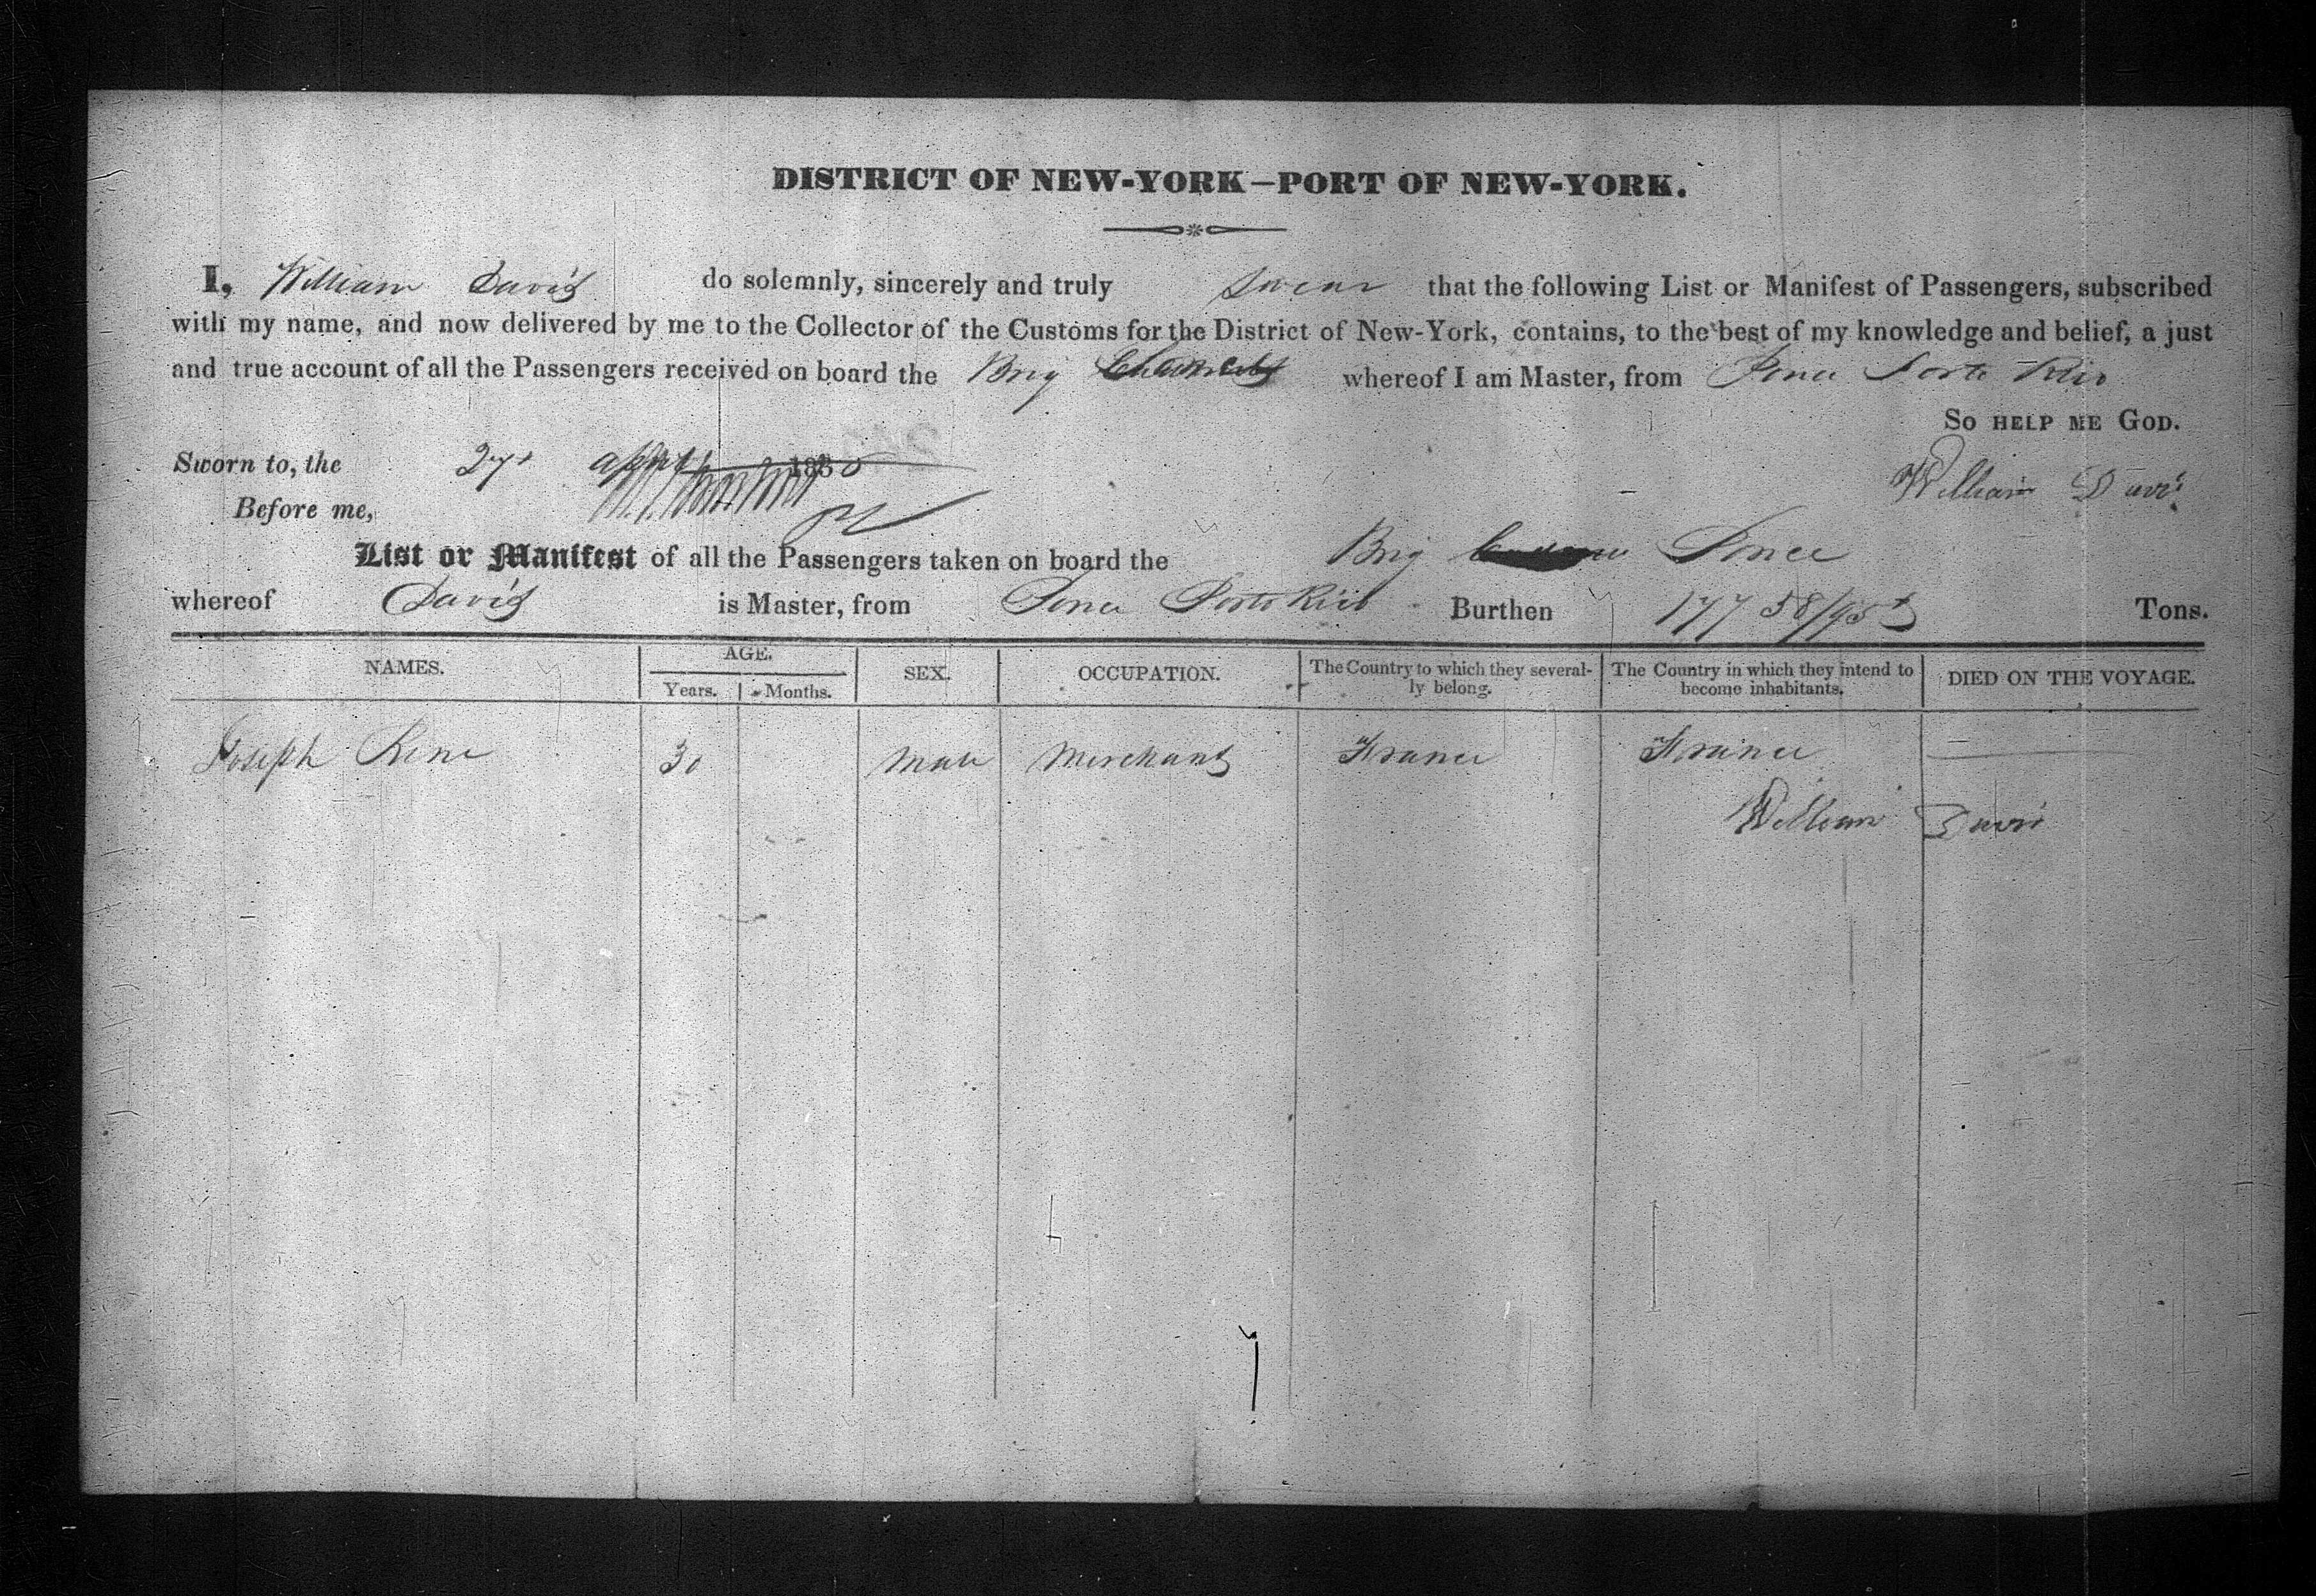 DISTRICT OF NEW-YORK—PORT OF NEW-YORK.
I, William Davis do solemnly, sincerely and truly swear that the following List or Manifest of Passengers, subscribed
with my name, and now delivered by me to the Collector of the Customs for the District of New-York, contains, to the best of my knowledge and belief, a just
and true account of all the Passengers received on board the Brig whereof I am Master, from Ponce Porto Rico
So HELP ME GOD.
Sworn to, the 27 april 183 William Davis
Before me,
List or Manifest of all the Passengers taken on board the Brig Ponce
whereof Davis is Master, from Ponce Porto Rico Burthen 177 58/95 Tons.
NAMES. AGE. SEX. OCCUPATION. The Country to which they several- The Country in which they intend to DIED ON THE VOYAGE.
Years. Months. ly belong. become inhabitants.
Joseph Rene 30 Male Merchant France France —
William Davis